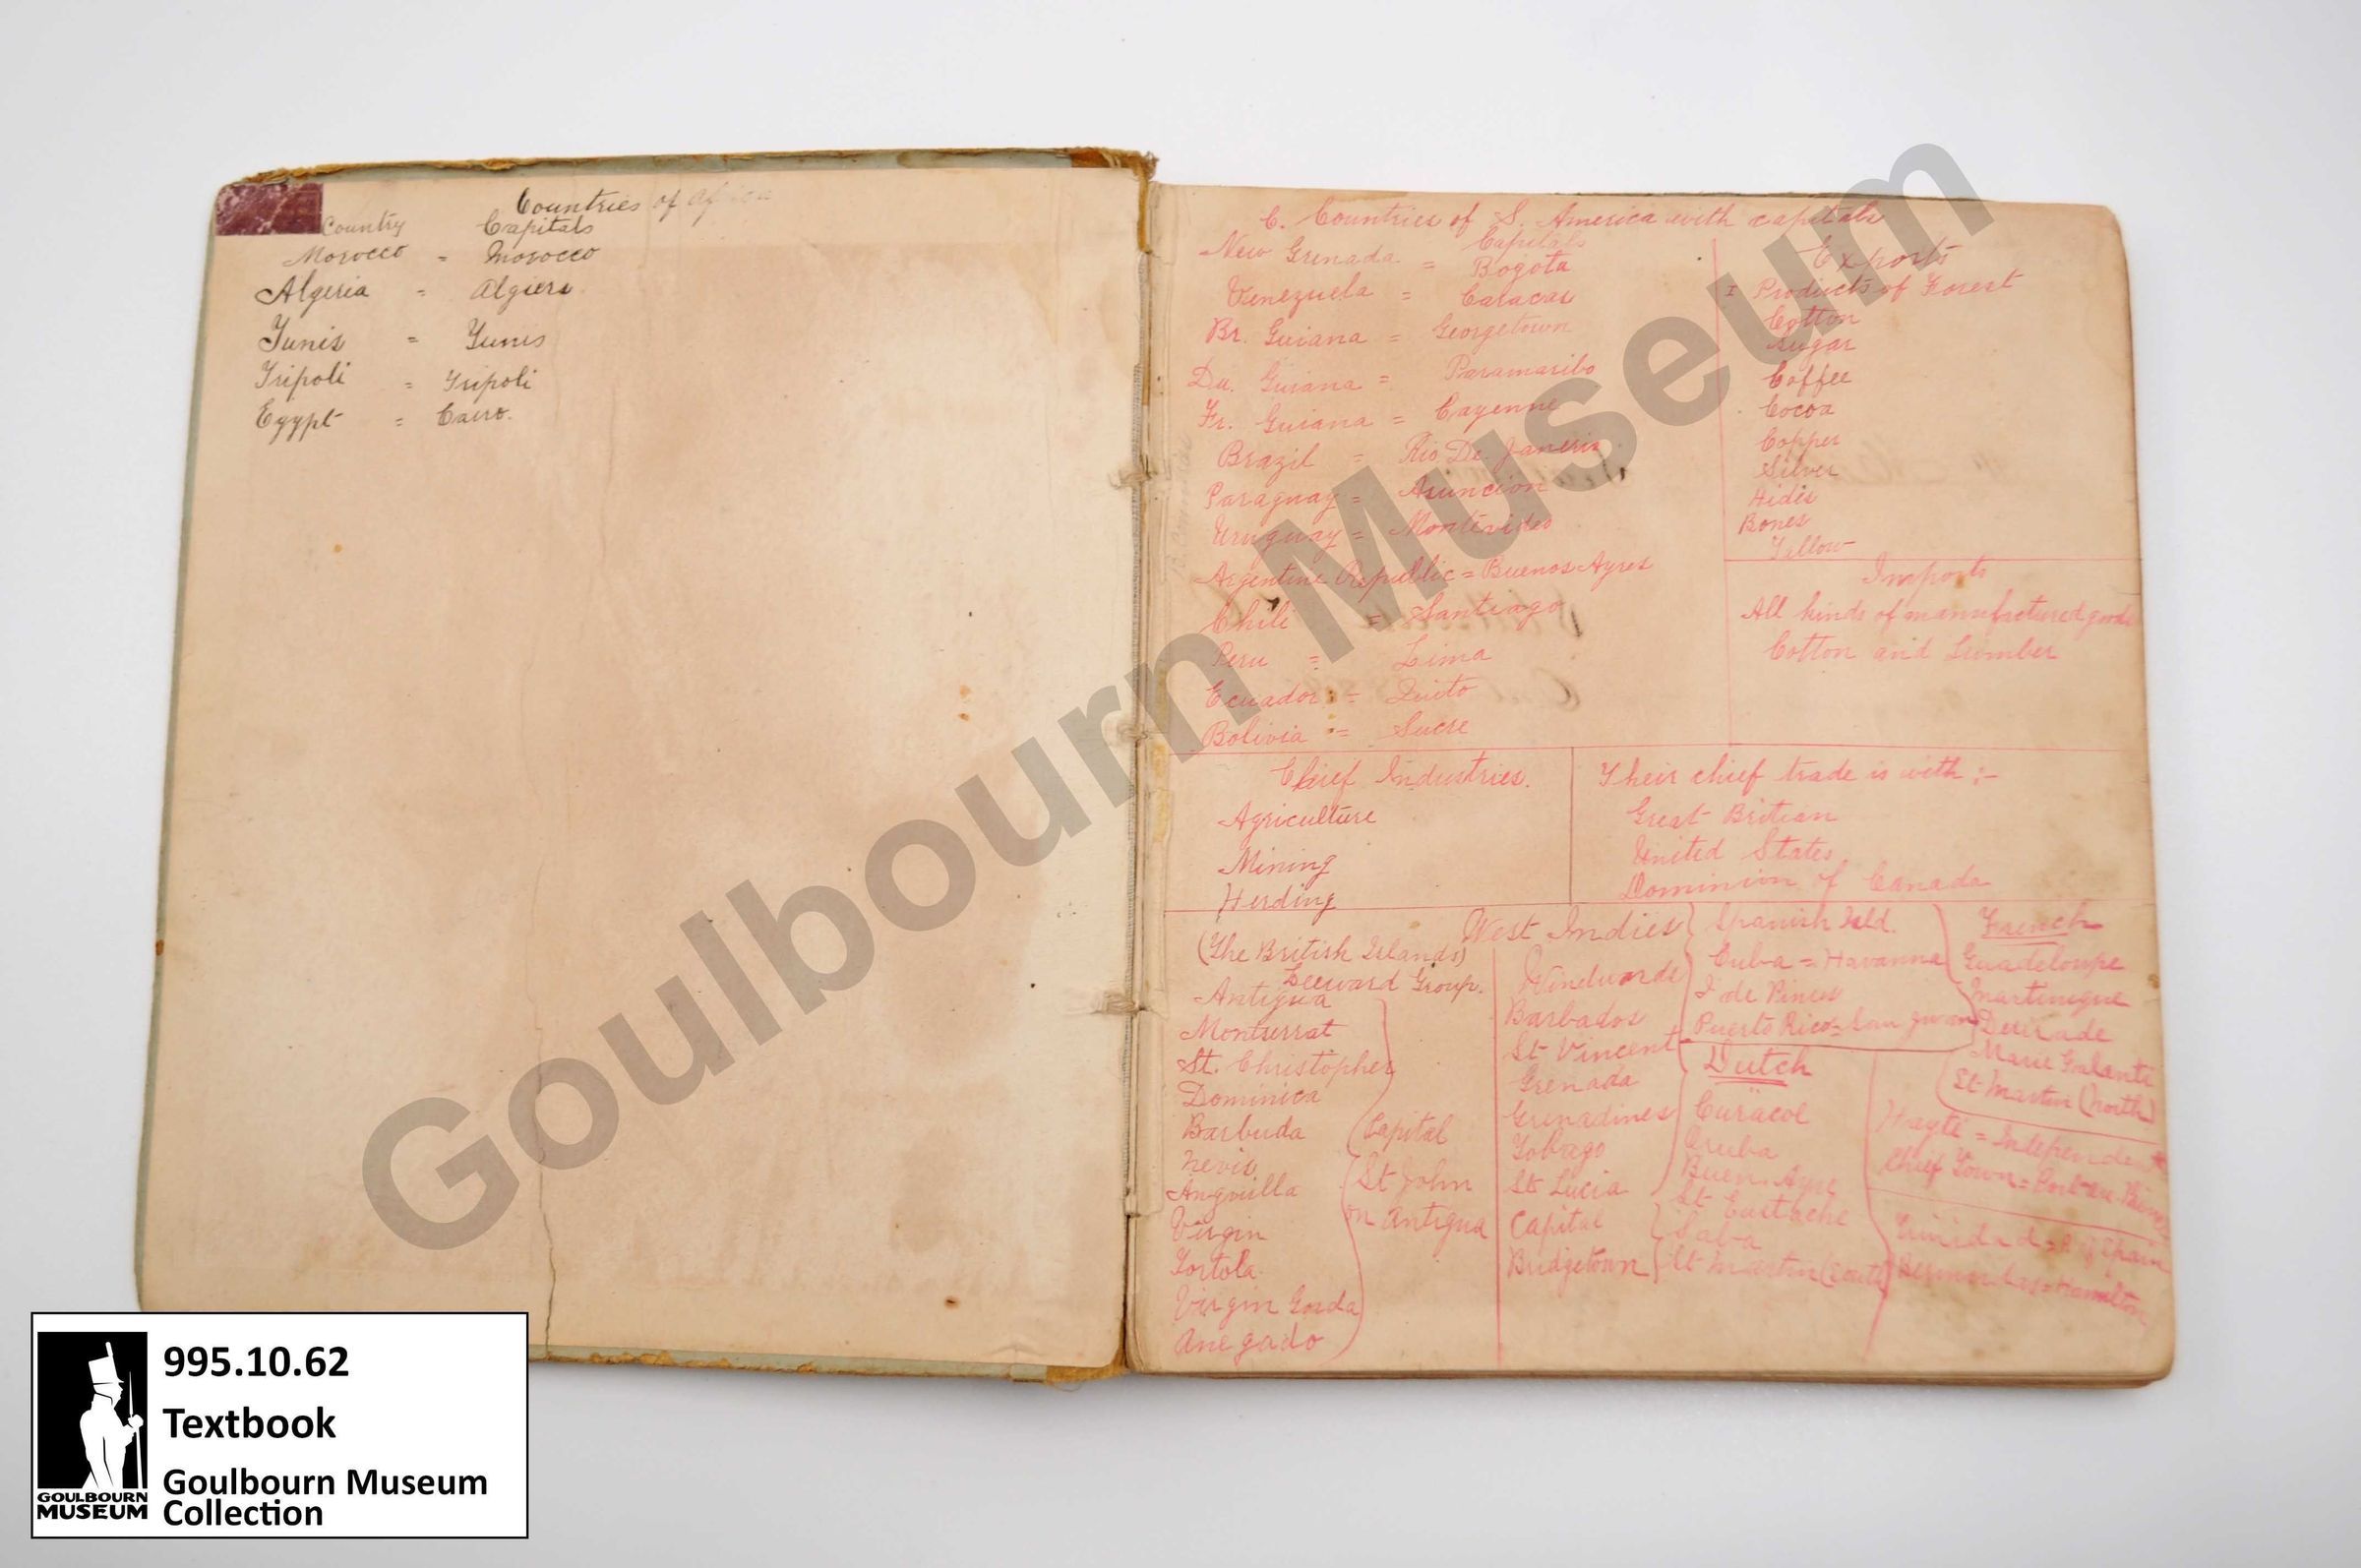 Countries of Africa
Country Capitals
Morocco = Morocco
Algeria = Algiers.
Tunis = Tunis
Tripoli = Tripoli
Egypt = Cairo.
C. Countries of S. America with capitals
Capitals
New Grenada = Bogota
Venezuela = Caracas
Br. Guiana = Georgetown
Du. Guiana = Paramaribo
Fr. Guiana = Cayenne
Brazil = Rio De Janeris
Paraguay = Asuncion
Uruguay = Montevideo
Argentine Republic = Buenos Ayres
Chili = Santiago
Peru = Lima
Ecuador = Quito
Bolivia = Sucre
Exports
I Products of Forest
Cotton
Sugar
Coffee
Cocoa
Copper
Silver
Hides
Bones
Tallow
Imports
All kinds of manufactured goods
Cotton and Lumber
Chief Industries.
Agriculture
Mining
Herding
Their chief trade is with :-
Great Britian
United States
Dominion of Canada
West Indies
(The British Islands)
Leeward Group.
Antigua
Montserrat
St. Christopher
Dominica
Barbuda
Nevis
Anguilla
Virgin
Tortola
Virgin Gorda
Anegado
Capital
St John
on Antigua
Windwards
Barbados
St Vincent
Grenada
Grenadines
Tobago
St Lucia
Capital
Bridgetown
Spanish Isld.
Cuba = Havanna
I de Pines
Puerto Rico = San Juan
Dutch
Curacoe
Oruba
Buen Ayre
St Eustache
Saba
St Martin (South)
French
Guadeloupe
Martinique
Desirade
Marie Galante
St Martin (North)
Hayte = Independent
Chief Town = Port au Prince
Trinidad = P of Spain
Hamilton
Goulbourn Museum
995.10.62
Textbook
Goulbourn Museum
Collection
GOULBOURN
MUSEUM